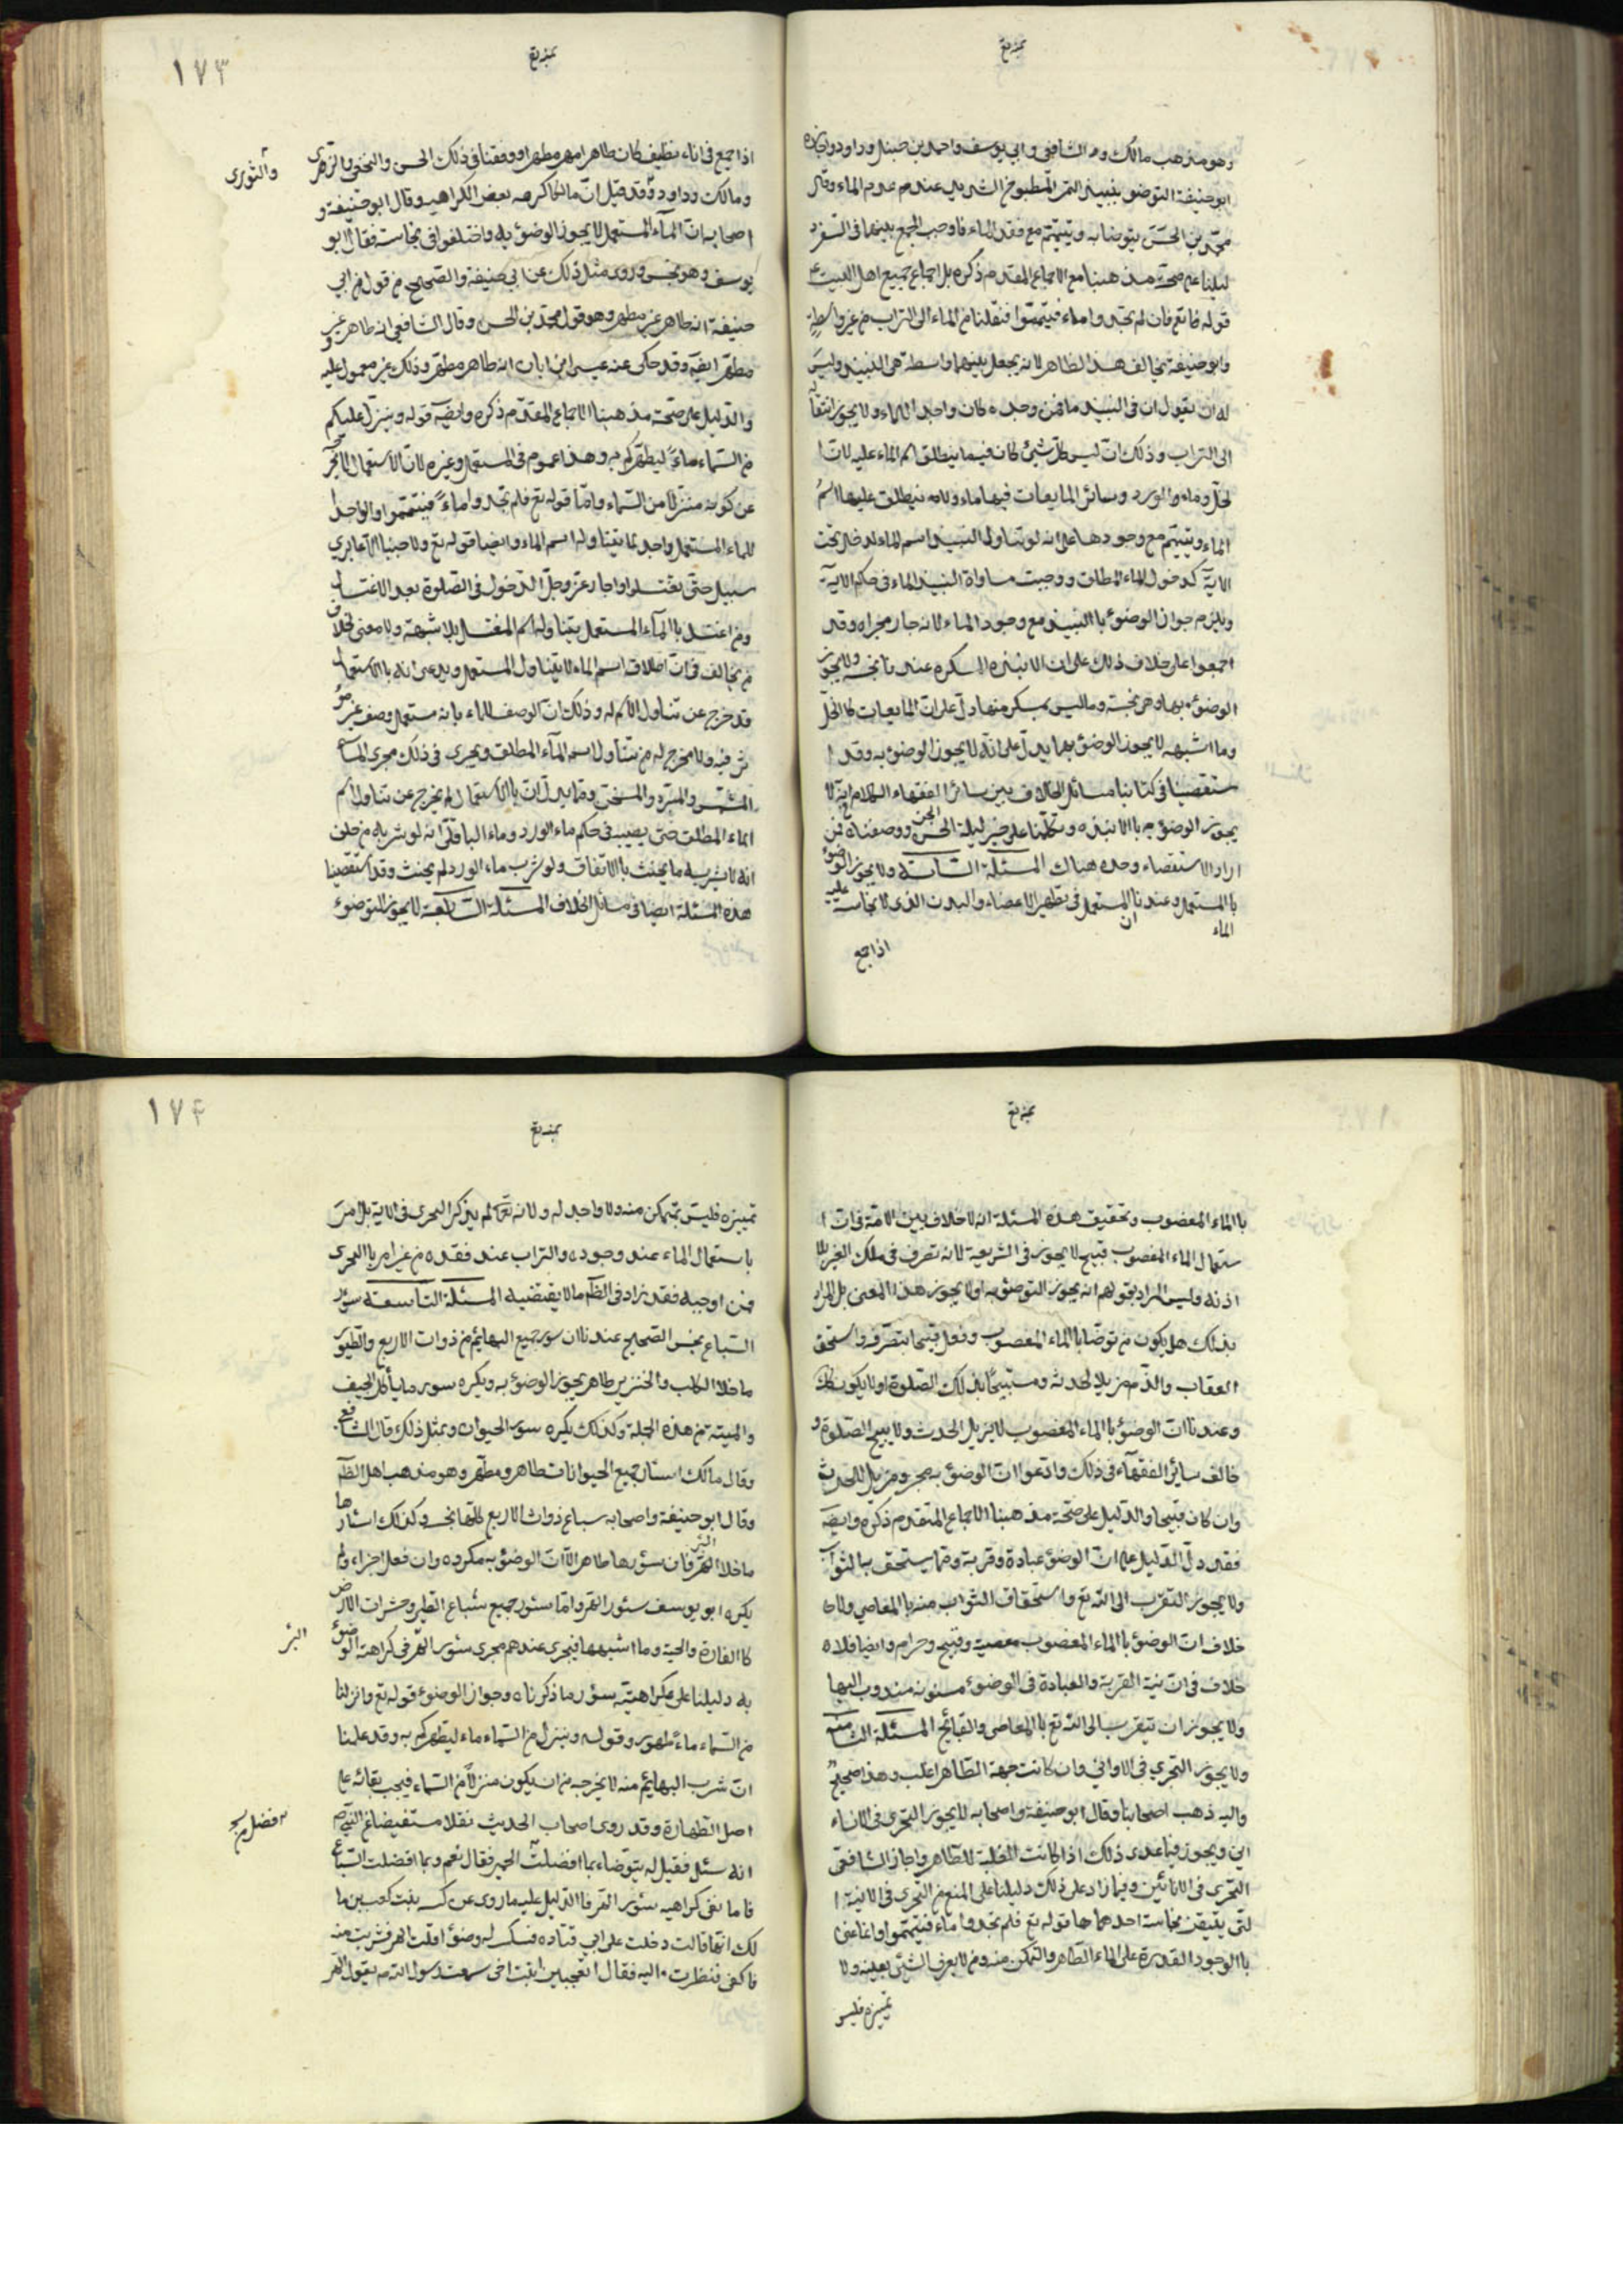 بمنه تع
وهو مذهب مالك والشافعي وابي يوسف واحمد بن حنبل وداود واجاز
ابو حنيفة التوضوء بنبيذ التمر المطبوخ الشديد عند عدم الماء وقال
محمد بن الحسن يتوضا به ويتيمم مع فقد الماء فاوجب الجمع بينهما في السفر
ليلنا على صحة مذهبنا مع الاجماع المقدم ذكره بل اجماع جميع اهل البيت ع
قوله تع فان لم تجدوا ماء فتيمموا فنقلنا من الماء الى التراب من غير واسطة
وابو حنيفة يخالف هذا الظاهر لانه يجعل بينهما واسطة هي النبيذ وليس
له ان يقول ان في النبيذ ماء فمن وجده كان واجد الماء ولا يجوز انتقاله
الى التراب وذلك ان ليس كل شيئ كان فيه ما ينطلق اسم الماء عليه لان ا
لخل وماء والورد وسائر المايعات فيها ماء ولا ينطلق عليها اسم
الماء ويتيمم مع وجودها على انه لو تناول النبيذ اسم الماء لدخل تحت
الاية كدخول الماء المطلق ووجبت مساواة النبيذ الماء في حكم الاية
ويلزم جواز الوضوئ باالنبيذ مع وجود الماء لانه جار مجراه وقد
اجمعوا على خلاف ذلك على ان الانبذه المسكره عندنا نجسه ولا يجوز
الوضوئ بها وهي نجسة وما ليس بمسكر منها دل على ان المايعات كالخل
وما اشبهه لا يجوز الوضوئ بها يدل على انه لا يجوز الوضوئ به وقد ا
ستقصينا في كتابنا مسائل الخلاف بين سائر الفقهاء الكلام في انه لا
يجوز الوضوئ باالانبذه وتكلمنا على خبر ليلة الجن ووصفناه فمن
اراد الاستقصاء وجده هناك المسئلة السادسة ولا يجوز الوضوئ
باالمستعمل وعندنا ان الماء المستعمل في تطهير الاعضاء والبدن الذي لا نجاسة عليه
اذا جمع
بمنه تع
١٧٣
اذا جمع في اناء نظيف كان طاهرا مطهرا ووفقنا في ذلك الحسن والنخعي والزهري
والثوري
ومالك وداود وقد قيل ان مالكا كرهه بعض الكراهيه وقال ابو حنيفة و
اصحابه ان الماء المستعمل لا يجوز الوضوئ به واختلفوا في نجاسته فقال ابو
يوسف وهو نجس وروى مثل ذلك عن ابي حنيفة والصحيح من قول ابي
حنيفة انه طاهر غير مطهر وهو قول محمد بن الحسن وقال الشافعي انه طاهر غير
مطهر ايضه وقد حكى عنه عيسى ابن ابان انه طاهر مطهر وذلك غير معمول عليه
والدليل على صحة مذهبنا الاجماع المقدم ذكره وايضه قوله وينزل عليكم
من السماء ماء ليطهركم به وهذا عموم في المستعمل وغيره لان الاستعمال لا يخرج
عن كونه منزلا من السماء وايضا قوله تع فلم تجدوا ماء فتيمموا والواجد
للماء المستعمل واجد لما يتناوله اسم الماء وايضا قوله تع ولا جنبا الا عابري
سبيل حتى تغتسلوا واجاز عز وجل الدخول في الصلوة بعد الاغتسال
ومن اغتسل باالماء المستعمل يتناوله اسم المغتسل بلا شبهة ولا معنى لخلاف
من يخالف في ان اطلاق اسم الماء لا يتناول المستعمل ويدعى انه باالاستعمال
قد خرج عن تناول الاسم له وذلك ان الوصف للماء بانه مستعمل وصف غير مو
ثر فيه ولا مخرج له من تناول اسم الماء المطلق ويجرى في ذلك مجرى الماء
المشمس والمبرد والمسخن ومما يدل ان باالاستعمال لم يخرج عن تناول اسم
الماء المطلق حتى يصيب في حكم ماء الورد وماء الباقلى انه لو شربه من حلف
انه لا يشرب ماء يحنث باالاتفاق ولو شرب ماء الورد لم يحنث وقد استقصينا
هذه المسئلة ايضا في مسائل الخلاف المسئلة السابعة لا يجوز التوضوئ
بمنه تع
باالماء المغصوب وتحقيق هذه المسئلة انه لا خلاف بين الامة في ان ا
ستعمال الماء المغصوب قبيح لا يجوز في الشريعة لانه تصرف في ملك الغير بلا
اذنه وليس المراد بقولهم انه يجوز التوضوئ به اولا يجوز هذا المعنى بل المراد
بذلك هل يكون من توضا باالماء المغصوب وفعل قبيحا بتصرفه واستحق
العقاب والذم مزيلا لحدثه ومستبيحا بذلك الصلوة اولا يكون كذلك
وعندنا ان الوضوئ باالماء المغصوب لا يزيل الحدث ولا يبيح الصلوة و
خالف سائر الفقهاء في ذلك وادعوا ان الوضوئ به مجز ومزيل للحدث
وان كان قبيحا والدليل على صحة مذهبنا الاجماع المتقدم ذكره وايضه
فقد دل الدليل على ان الوضوئ عبادة وقربة ومما يستحق به الثواب
ولا يجوز التقرب الى الله تع واستحقاق الثواب منه باالمعاصي ولا
خلاف ان الوضوئ باالماء المغصوب معصية وقبيح وحرام وايضا فلا
خلاف في ان نية القربة والعبادة في الوضوئ مسنونه مندوب اليها
ولا يجوز ان يتقرب الى الله تع باالمعاصي والقبائح المسئلة الثامنة
ولا يجوز التحري في الاواني وان كانت جهة الطاهر اغلب وهذا صحيح
واليه ذهب اصحابنا وقال ابو حنيفة واصحابه لا يجوز التحري في الاناء
اين ويجوز فيما عدى ذلك اذا كانت الغلبة للطاهر واجاز الشافعي
التحري في الانائين وفيما زاد على ذلك دليلنا على المنع من التحري في الانية ا
لتي يتيقن نجاسة احدهما قوله تع فلم تجدوا ماء فتيمموا وانما عنى
باالوجود القدرة على الماء الطاهر والتمكن منه ومن لا يعرف الشئ بعينه ولا
تميزه فليس
بمنه تع
١٧٤
تميزه فليس بمتمكن منه ولا واجد له ولانه تعالى لم يذكر التحرى في الاية بل امر
باستعمال الماء عند وجوده والتراب عند فقده من غير امر باالتحرى
فمن اوجبه فقد زاد في الظاهر ما لا يقتضيه المسئلة التاسعة سؤر
السباع نجس الصحيح عندنا ان سور جميع البهائم من ذوات الاربع والطيور
ما خلا الكلب والخنزير طاهر يجوز الوضوئ به ويكره سور ما يأكل الجيف
والميته من هذه الجملة وكذلك يكره سور الحيوان وبمثل ذلك قال الشافعي
وقال مالك اسئار جميع الحيوانات طاهر ومطهر وهو مذهب اهل الظاهر
وقال ابو حنيفة واصحابه سباع ذوات الاربع كلها نجس وكذلك اسئارها
ما خلا الهر فان سؤرها طاهر الا ان الوضوئ به مكروه وان فعل اجزاء ولم
يكره ابو يوسف سئور الهر واما سئور جميع سباع الطير وحشرات الارض
كاالفارة والحية وما اشبهها فيجرى عندهم مجرى سئور الهر في كراهة الوضوئ
البر
به دليلنا على كراهيته سؤر ما ذكرناه وجواز الوضوئ قوله تع وانزلنا
من السماء ماء طهورا وقوله وينزل من السماء ماء ليطهركم به وقد علمنا
ان شرب البهائم منه لا يخرجه من ان يكون منزلا من السماء فيجب بقائه على
اصل الطهارة وقد روى اصحاب الحديث نقلا مستفيضا عن النبي ص
انه سئل فقيل له يتوضاء بما افضلت الحمير فقال نعم وبما افضلت السباع
فاما نفى كراهيه سؤر الهر فاالدليل عليه ما روى عن كبشه بنت كعب بن ما
لك انها قالت دخلت على ابي قتاده فسكب له وضوئ اقبلت الهر فشربت منه
فاكفى فنظرت اليه فقال اتعجبين ابنت اخى سمعت رسول الله ص يقول الهر